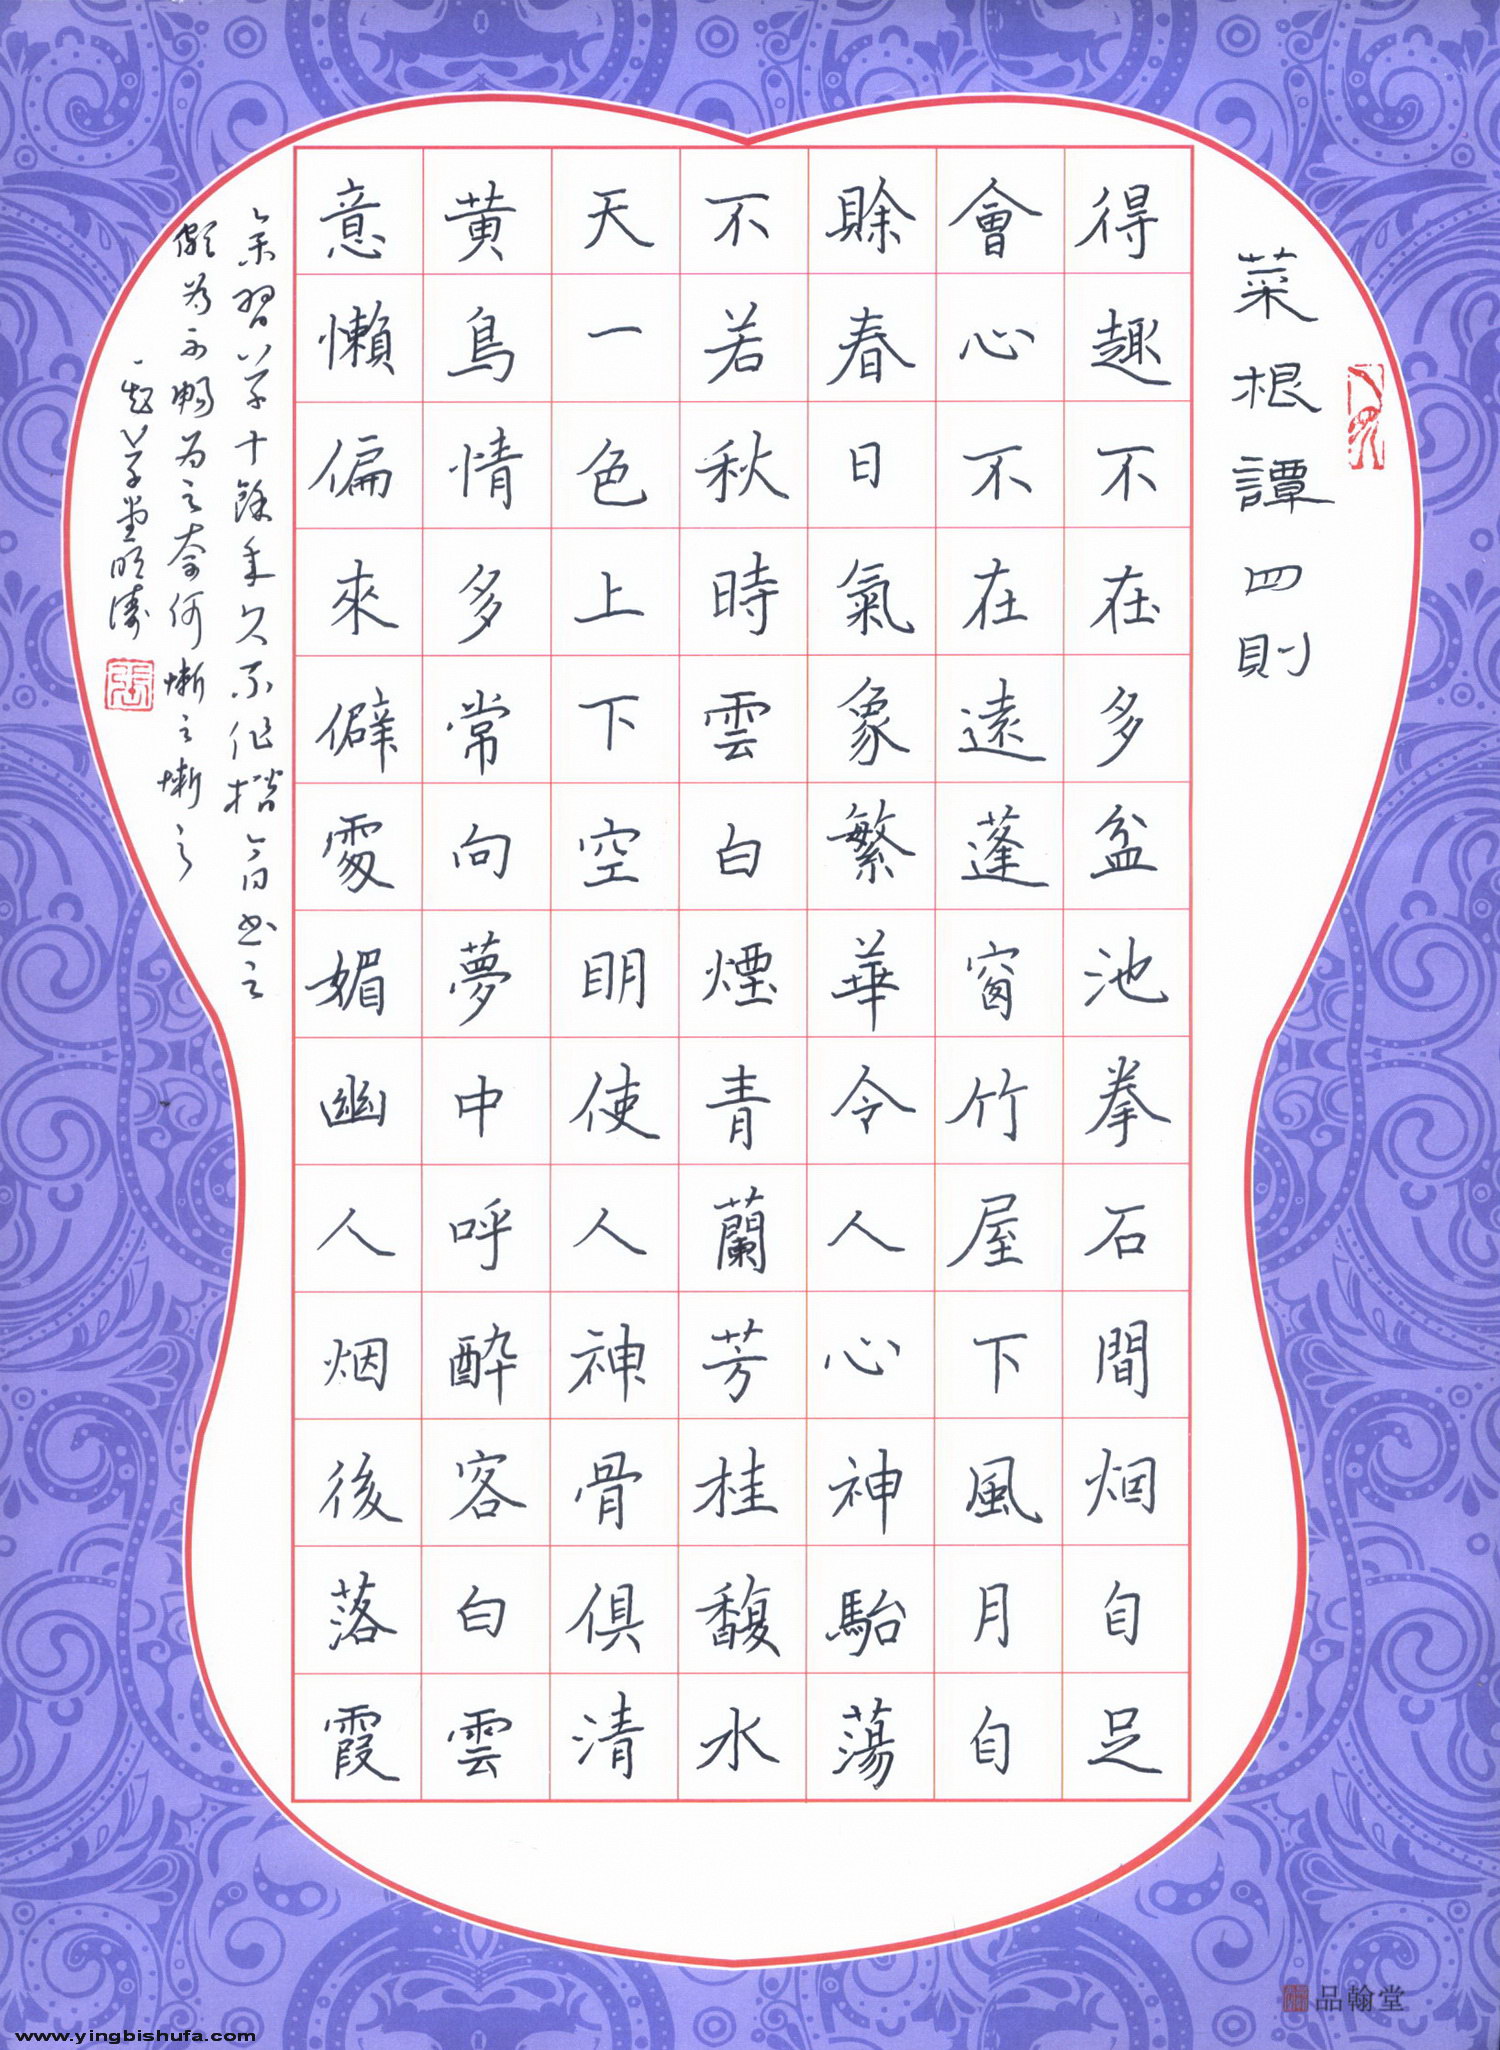 菜根譚四則
得趣不在多盆池拳石間烟自足
會心不在遠蓬窗竹屋下風月自
賒春日氣象繁華令人心神駘蕩
不若秋時雲白煙青蘭芳桂馥水
天一色上下空明使人神骨俱清
黄鳥情多常向夢中呼醉客白雲
意懶偏來僻處媚幽人烟後落霞
余習草十餘年久不作楷今日書之
頗為不暢為之奈何慚之慚之
草堂明濤
品翰堂
www.yingbishufa.com